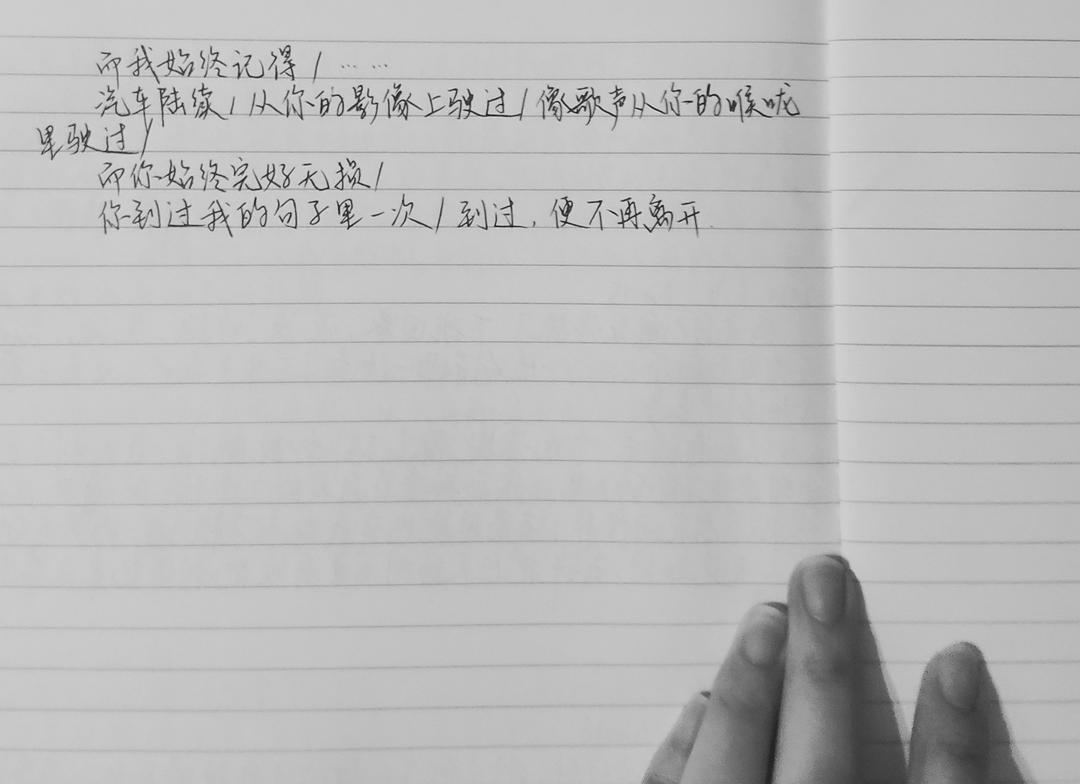 而我始终记得/……
汽车陆续/从你的影像上驶过/像歌声从你的喉咙
里驶过/
而你始终完好无损/
你到过我的句子里一次/到过,便不再离开.